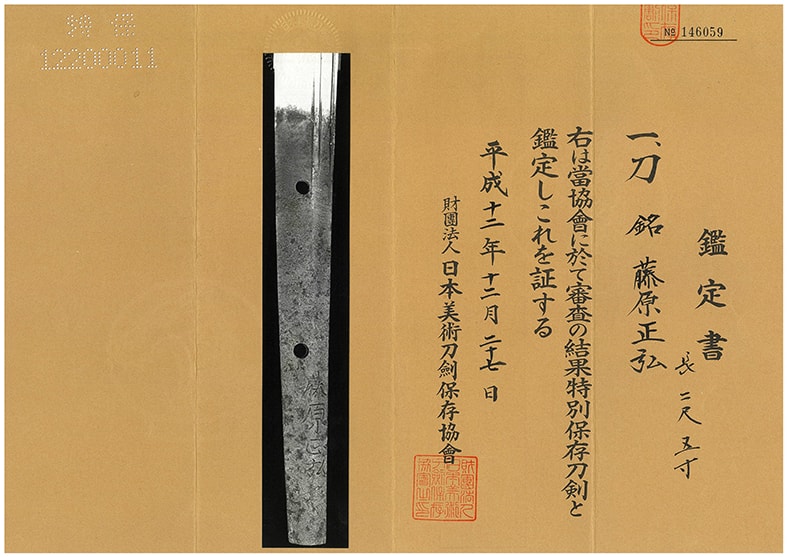 鑑定書
一、刀 銘 藤原正弘
長 二尺五寸
右は當協會に於て審査の結果特別保存刀剣と
鑑定しこれを証する
平成十二年十二月二十七日
財團法人 日本美術刀劍保存協會
№ 146059
特保
12200011
藤原正弘